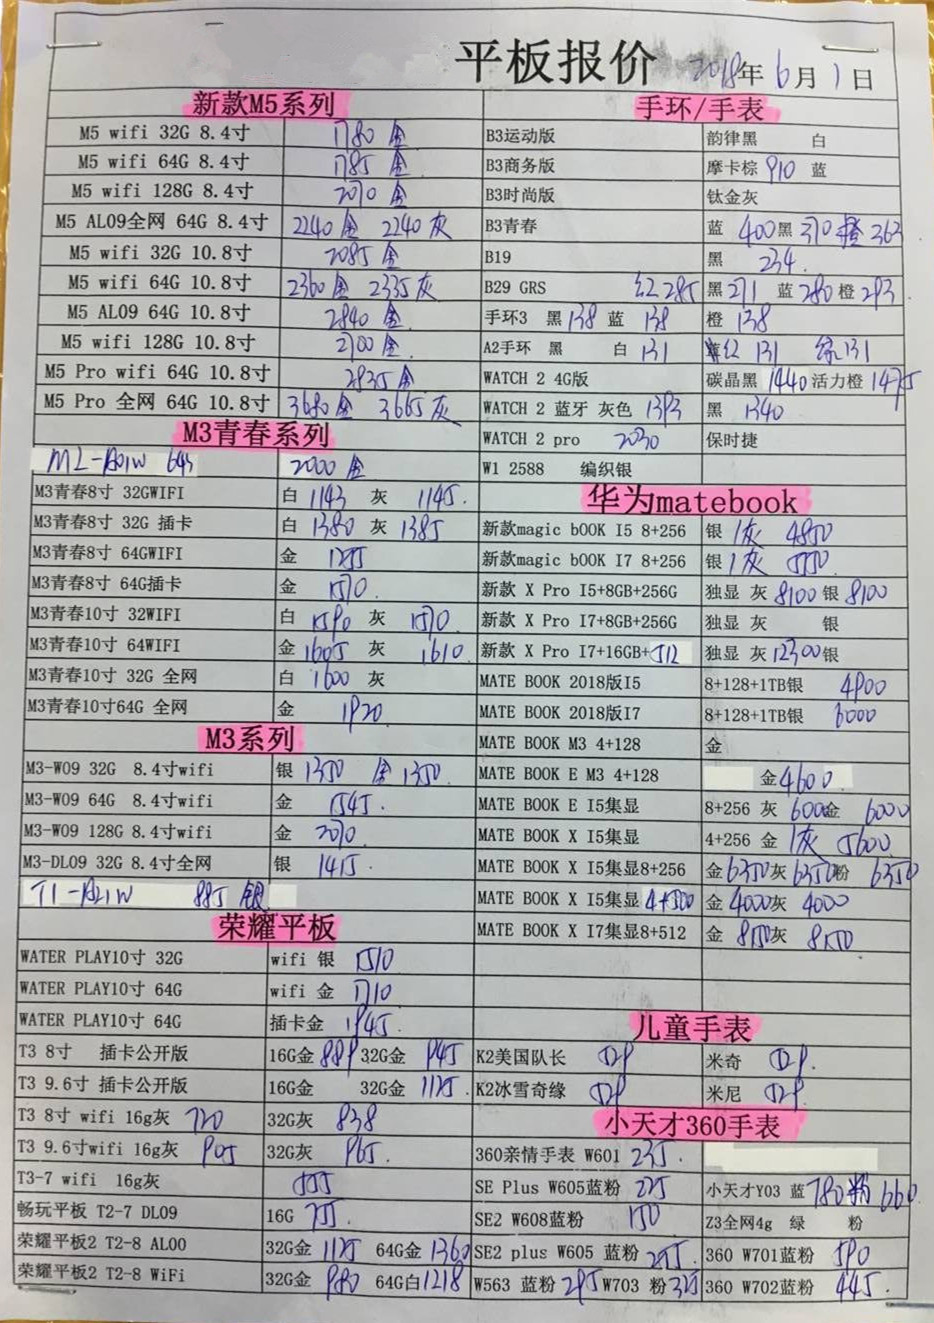 平板报价 2018年6月1日
新款M5系列
M5 wifi 32G 8.4寸 1780 金
M5 wifi 64G 8.4寸 1785 金
M5 wifi 128G 8.4寸 2070 金
M5 AL09全网 64G 8.4寸 2240 金 2240 灰
M5 wifi 32G 10.8寸 2085 金
M5 wifi 64G 10.8寸 2360 金 2335 灰
M5 AL09 64G 10.8寸 2840 金
M5 wifi 128G 10.8寸 2700 金
M5 Pro wifi 64G 10.8寸 2835 金
M5 Pro 全网 64G 10.8寸 3680 金 3665 灰
M3青春系列
2000 金
M3青春8寸 32GWIFI 白 1143 灰 1145.
M3青春8寸 32G 插卡 白 1380 灰 1385
M3青春8寸 64GWIFI 金
M3青春8寸 64G插卡 金 1570.
M3青春10寸 32WIFI 白 1590 灰 1570.
M3青春10寸 64WIFI 金 1605 灰 1610.
M3青春10寸 32G 全网 白 1600 灰
M3青春10寸64G 全网 金 1920.
M3系列
M3-W09 32G 8.4寸wifi 银 1350 金 1350.
M3-W09 64G 8.4寸wifi 金 1545.
M3-W09 128G 8.4寸wifi 金 2070.
M3-DL09 32G 8.4寸全网 银 1415.
T1-A21W 885 银
荣耀平板
WATER PLAY10寸 32G wifi 银 1510
WATER PLAY10寸 64G wifi 金 1710
WATER PLAY10寸 64G 插卡金 1945.
T3 8寸 插卡公开版 16G金 889 32G金 945
T3 9.6寸 插卡公开版 16G金 32G金 1125.
T3 8寸 wifi 16g灰 720 32G灰 838
T3 9.6寸wifi 16g灰 905 32G灰 965.
T3-7 wifi 16g灰 555
畅玩平板 T2-7 DL09 16G 755.
荣耀平板2 T2-8 AL00 32G金 1125 64G金 1360
荣耀平板2 T2-8 WiFi 32G金 980 64G白1218
手环/手表
B3运动版 韵律黑 白
B3商务版 摩卡棕 910 蓝
B3时尚版 钛金灰
B3青春 蓝 400黑 370 橙 363
B19 黑 234.
B29 GRS 红 285 黑 271 蓝 280 橙 293
手环3 黑 138 蓝 138 橙 138
A2手环 黑 白 131 红 131 绿131
WATCH 2 4G版 碳晶黑 1440 活力橙 1475
WATCH 2 蓝牙 灰色 1393 黑 1340
WATCH 2 pro 2030 保时捷
W1 2588 编织银
华为matebook
新款magic bOOK I5 8+256 银 1灰 4850
新款magic bOOK I7 8+256 银 1灰 5550
新款 X Pro I5+8GB+256G 独显 灰 8100 银 8100
新款 X Pro I7+8GB+256G 独显 灰 银
新款 X Pro I7+16GB+512 独显 灰 12300银
MATE BOOK 2018版I5 8+128+1TB银 4900
MATE BOOK 2018版I7 8+128+1TB银 6000
MATE BOOK M3 4+128 金
MATE BOOK E M3 4+128 金4600
MATE BOOK E I5集显 8+256 灰 6000金 6000
MATE BOOK X I5集显 4+256 金 1灰 5600.
MATE BOOK X I5集显8+256 金6350灰6350粉 6350
MATE BOOK X I5集显 金 4000灰 4000
MATE BOOK X I7集显8+512 金 8150灰 8150
儿童手表
K2美国队长 米奇
K2冰雪奇缘 米尼
小天才360手表
360亲情手表 W601 235.
SE Plus W605蓝粉 225 小天才Y03 蓝 780粉 660
SE2 W608蓝粉 150 Z3全网4g 绿 粉
SE2 plus W605 蓝粉 255. 360 W701蓝粉 590
W563 蓝粉 295 W703 粉 325 360 W702蓝粉 445.